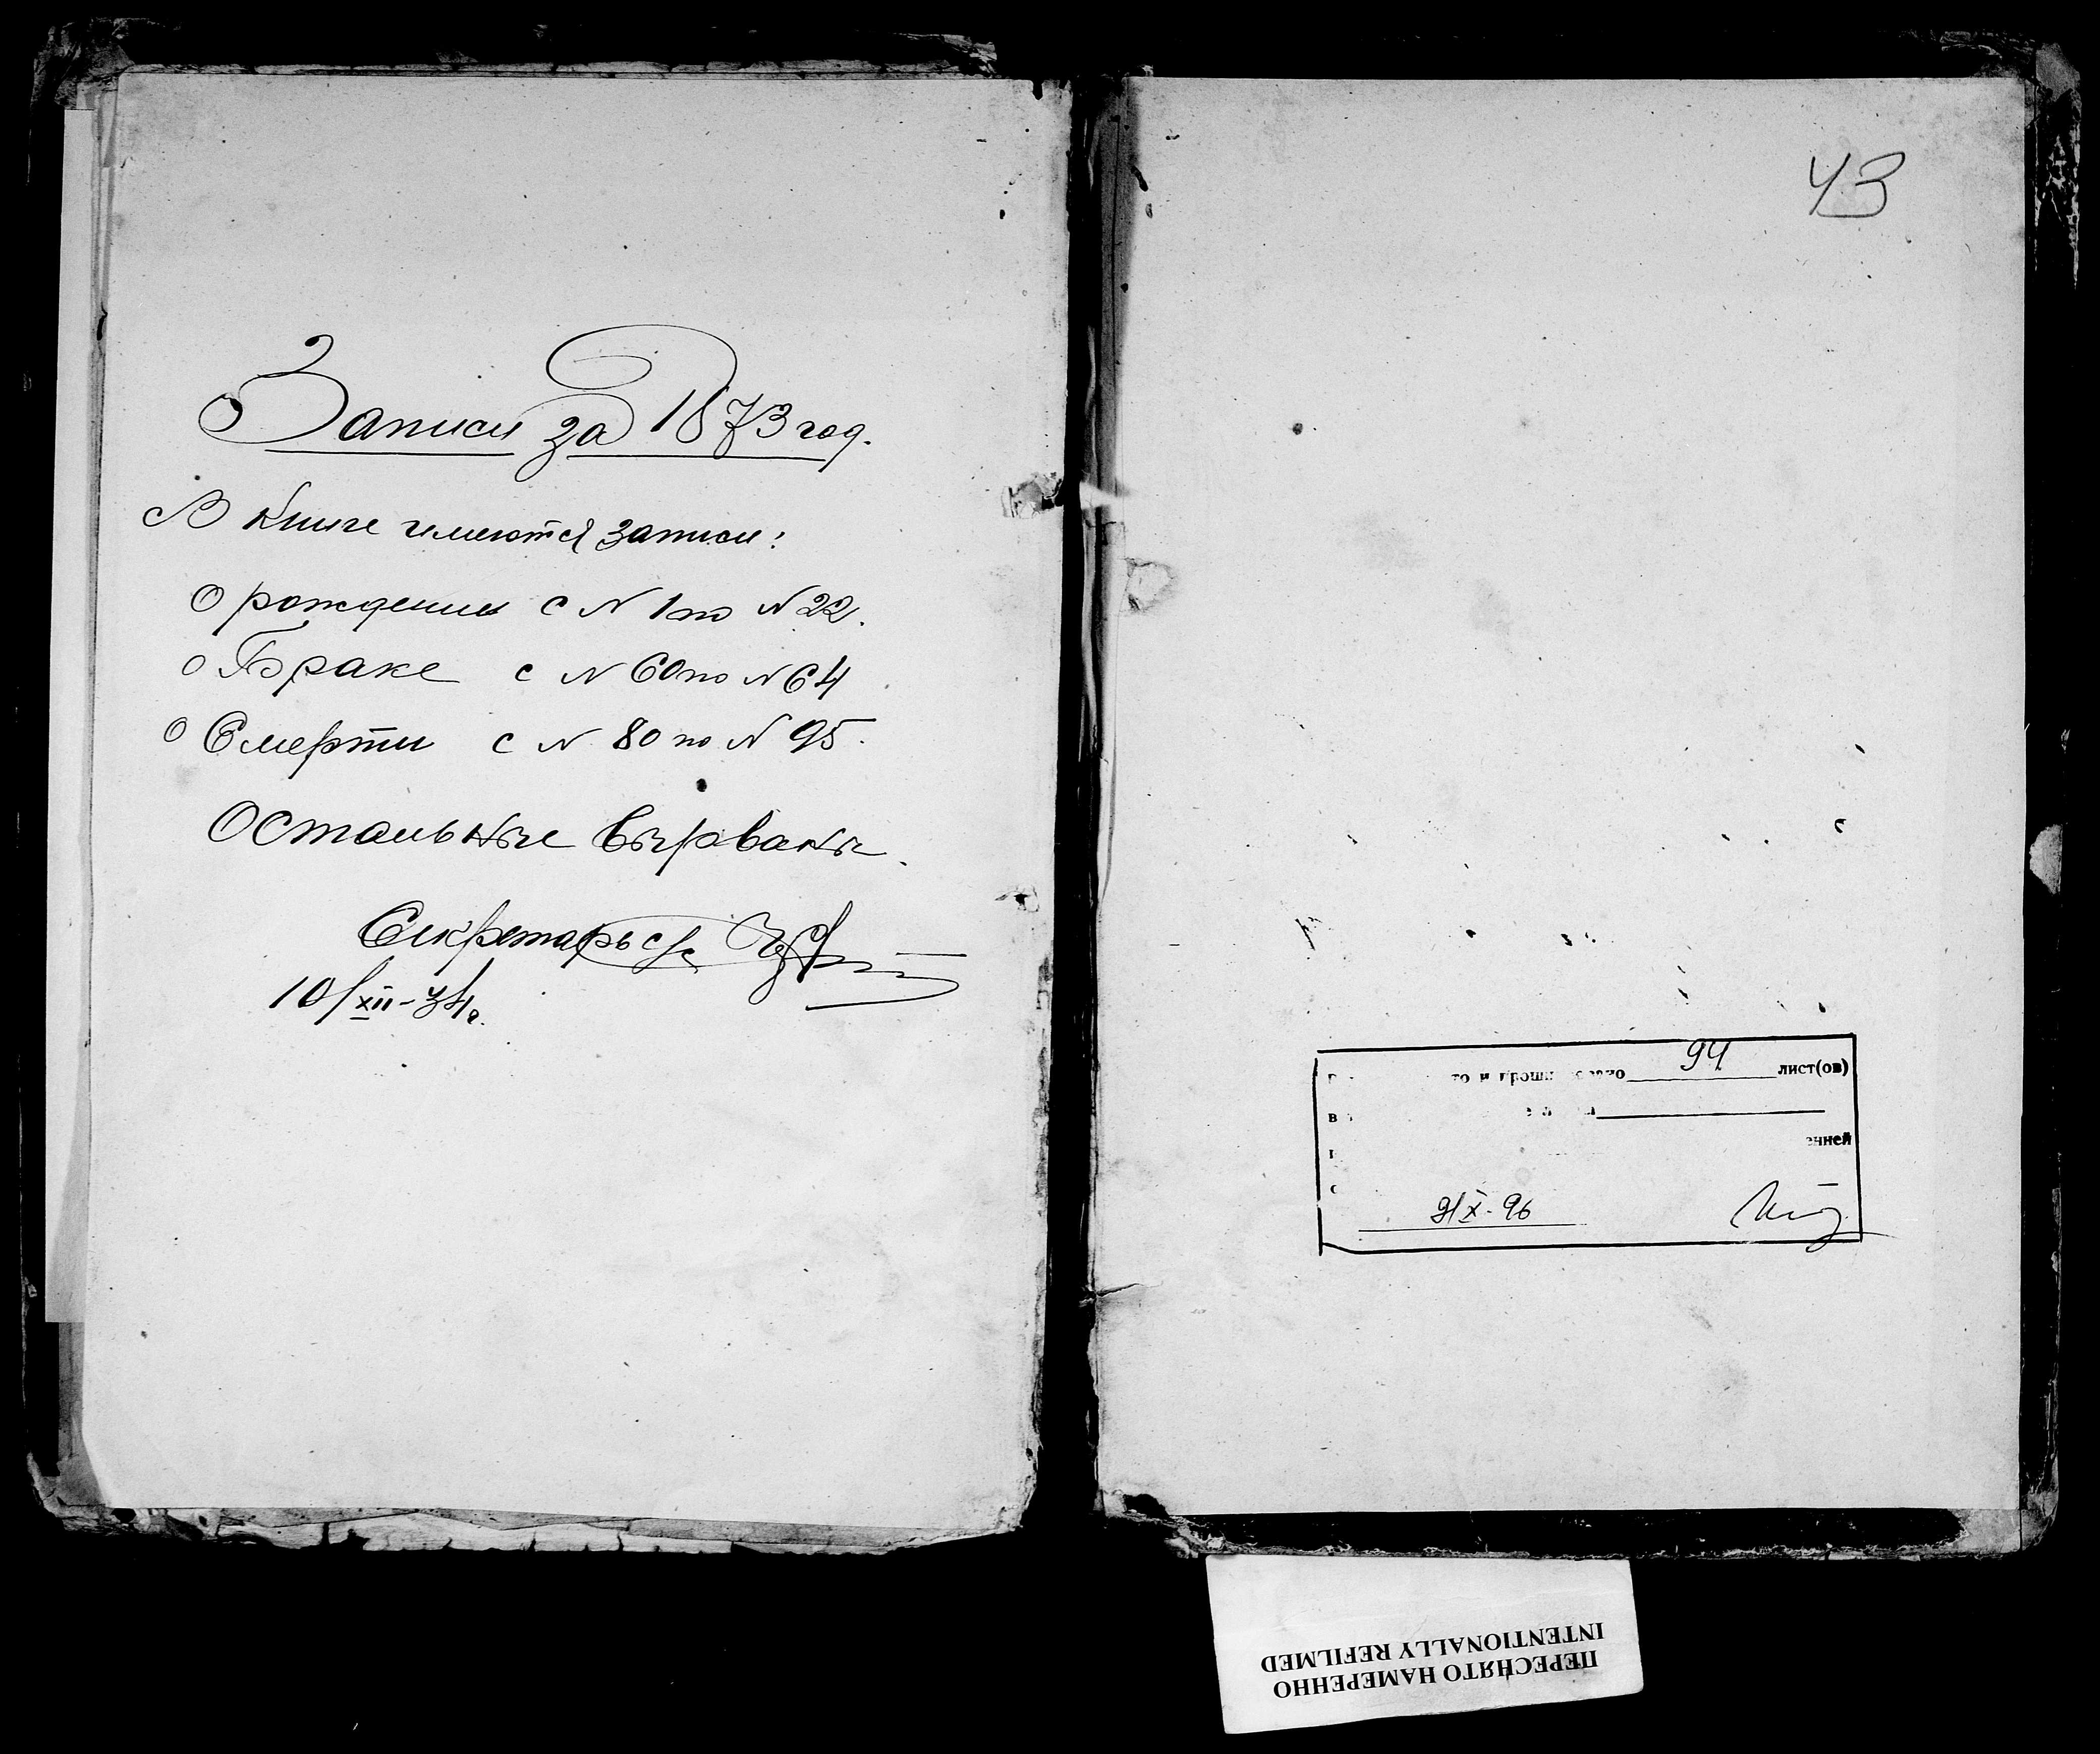 Записи за 1873 год.
В книге имеются записи:
О рождении с N 1 по N 22.
о Браке с N 60 по N 64
о Смерти с N 80 по N 95.
Остальные вырваны.
Секретарь с/с
10/XII-34г.
43
94 лист(ов)
в
енней
с
X-96
ПЕРЕСНЯТО НАМЕРЕННО
INTENTIONALLY REFILMED